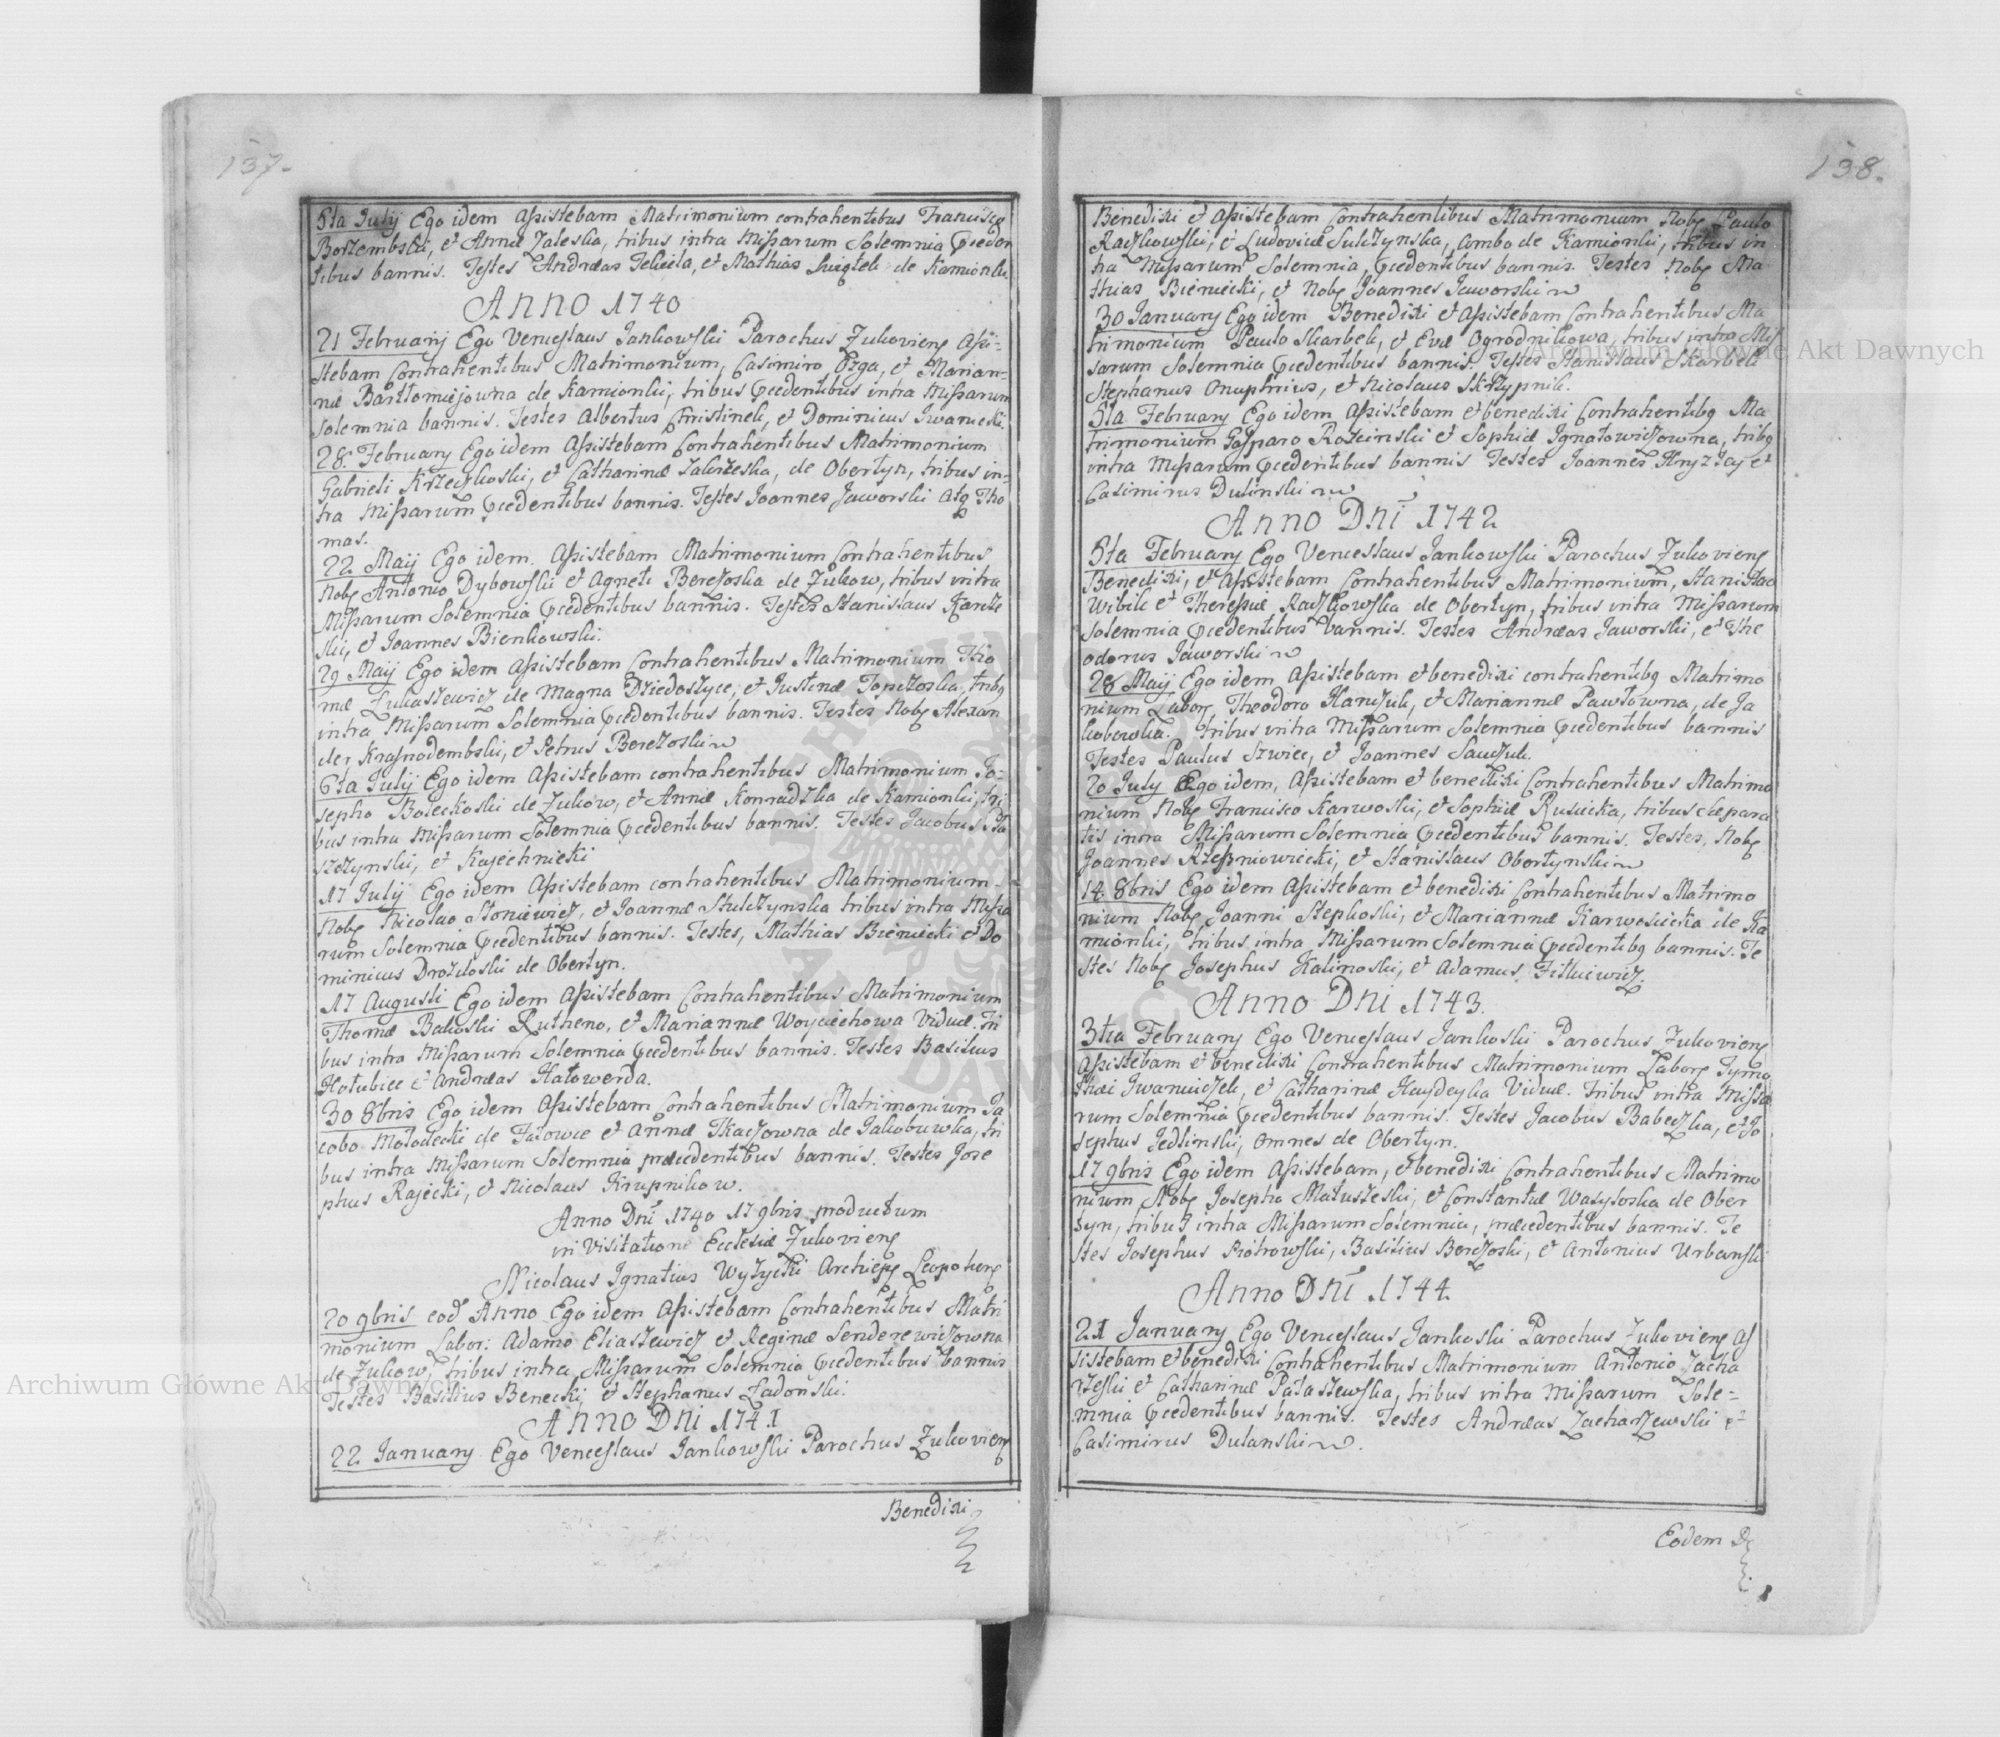 137.
5ta Julij Ego idem Assistebam Matrimonium contrahentibus Francisco
Borzembski, et Annæ Zaleska, tribus intra Missarum Solemnia præceden
tibus bannis. Testes Andræas Telicila, et Mathias Swiątek de Kamionki
Anno 1740
21 Februarij Ego Venceslaus Jankowski Parochus Zukoviens Assi-
stebam Contrahentibus Matrimonium, Casimiro Ozga, et Marian-
næ Bartłomiejowna de Kamionki, tribus præcedentibus intra Missarum
Solemnia bannis. Testes Albertus Christinek, et Dominicus Iwanicki
28. February Ego idem Assistebam Contrahentibus Matrimonium
Gabrieli Krzeczkoski, et Catharinæ Zakrzeska, de Obertyn, tribus in-
tra Missarum præcedentibus bannis. Testes Joannes Jaworski atq Tho
mas.
22 Maij Ego idem. Assistebam Matrimonium Contrahentibus
Nobs Antonio Dybowski et Agneti Berezoska de Zukow, tribus intra
Missarum Solemnia præcedentibus bannis. Testes Stanislaus
ski, et Joannes Bienkowski.
29 Maij Ego idem Assistebam Contrahentibus Matrimonium Tho
mæ Łukaszewicz de Magna Dziedoszyce, et Justinæ Topczoska, tribq
intra Missarum Solemnia præcedentibus bannis. Testes Nobs Alexan
der Krasnodembski, et Petrus Berezoski
6ta Julij Ego idem Assistebam contrahentibus Matrimonium Jo-
sepho Boleckoski de Zukow, et Annæ Konradzka de Kamionki, tri
bus intra Missarum Solemnia præcedentibus bannis. Testes Jacobus
szczynski, et Kajechnicki
17 Julij Ego idem Assistebam contrahentibus Matrimonium
Nobs Nicolao Słoniewicz, et Joannæ Stulczynska tribus intra Missa
rum Solemnia præcedentibus bannis. Testes, Mathias Bieniecki et Do
minicus Drozdoski de Obertyn.
17 Augusti Ego idem Assistebam Contrahentibus Matrimonium
Thomæ Bakoski Rutheno, et Mariannæ Woyciechowa Viduæ. Tri
bus intra Missarum Solemnia præcedentibus bannis. Testes Basilius
Hołubiec et Andræas Hałowerda.
30 8bris Ego idem Assistebam Contrahentibus Matrimonium Ja
cobo Mołodecki de Fatowce et Annæ Tkaczowna de Jakubuwka, tri
bus intra Missarum Solemnia præcedentibus bannis. Testes Jose
phus Rajecki, et Nicolaus Krupnikow.
Anno Dni 1740 17 9bris productum
in Visitatione Ecclesiæ Zukoviens
Nicolaus Ignatius Wyżycki Archieps Leopoliens
20 9bris eod Anno Ego idem Assistebam Contrahentibus Matri
monium Labor: Adamo Eliaszewicz et Reginæ Senderewiczowna
de Zukow, tribus intra Missarum Solemnia præcedentibus bannis
Testes Basilius Benecki, et Stephanus Zadonski.
Anno Dni 1741
22 January Ego Venceslaus Jankowski Parochus Zukoviens
Benedixi
138.
Benedixi et Assistebam Contrahentibus Matrimonium Nobs Paulo
Raczkowski, et Ludovicæ Sulczynska, ambo de Kamionki, tribus in
tra Missarum Solemnia, præcedentibus bannis. Testes Nobs Ma
thias Bieniecki, et Nobs Joannes Jaworski
30 January Ego idem Benedixi et Assistebam Contrahentibus Ma
trimonium Paulo Skarbek, et Evæ Ogrodnikowa, tribus intra Mis
sarum Solemnia præcedentibus bannis. Testes Stanislaus Skarbek
Stephanus Onuphrius, et Nicolaus Skrzypnik.
5ta February Ego idem Assistebam et benedixi Contrahentibq Ma
trimonium Gasparo Rozcinski et Sophiæ Ignatowiczowna, tribq
intra Missarum præcedentibus bannis Testes Joannes Hryzłay et
Casimirus Dulinski
Anno Dni 1742
5ta February Ego Venceslaus Jankowski Parochus Zukoviens
Benedixi, et Assistebam Contrahentibus Matrimonium, Stanislao
Wibik et Theresiæ Raczkowska de Obertyn, tribus intra Missarum
Solemnia præcedentibus bannis. Testes Andræas Jaworski, et The
odorus Jaworski
28 Maij Ego idem Assistebam et benedixi contrahentibq Matrimo
nium Labors Theodoro Hawczuk, et Mariannæ Pawłowna, de Ja
kobowka. tribus intra Missarum Solemnia præcedentibus bannis
Testes Paulus Szwiec, et Joannes Sawczuk.
20 July Ego idem, Assistebam et benedixi Contrahentibus Matrimo
nium Nobs Francisco Karwoski, et Sophiæ Rusiecka, tribus
tis intra Missarum Solemnia præcedentibus bannis. Testes, Nobs
Joannes Krzesniowiecki, et Stanislaus Obertynski
14 8bris Ego idem Assistebam et benedixi Contrahentibus Matrimo
nium Nobs Joanni Stepkoski, et Mariannæ Karwosiecka de Ka
mionki, tribus intra Missarum Solemnia præcedentibq bannis. Te
stes Nobs Josephus Kalinoski, et Adamus Fitkiewicz.
Anno Dni 1743.
3tia February Ego Venceslaus Jankoski Parochus Zukoviens
Assistebam et benedixi Contrahentibus Matrimonium Labors Tymo
thæi Iwaniiczek, et Catharinæ Haydeyka Viduæ. Tribus intra Missa
rum Solemnia præcedentibus bannis. Testes Jacobus Babeczka, et Jo
sephus Jedlinski, omnes de Obertyn.
17 9bris Ego idem Assistebam, et benedixi Contrahentibus Matrimo
nium Nobs Josepho Matuszeski, et Constantiæ Wasyłoska de Ober
tyn, tribus intra Missarum Solemnia, præcedentibus bannis. Te
stes Josephus Piotrowski, Basilius Berezoski, et Antonius Urbanski
Anno Dni 1744
21 January Ego Venceslaus Jankoski Parochus Zukoviens As
sistebam et benedixi Contrahentibus Matrimonium Antonio Zacha
rzeski et Catharinæ Pałaszewska, tribus intra Missarum Sole-
mnia præcedentibus bannis. Testes Andræas Zacharzewski et
Casimirus Dulanski.
Eodem D
Archiwum Główne Akt Dawnych
Archiwum Główne Akt Dawnych